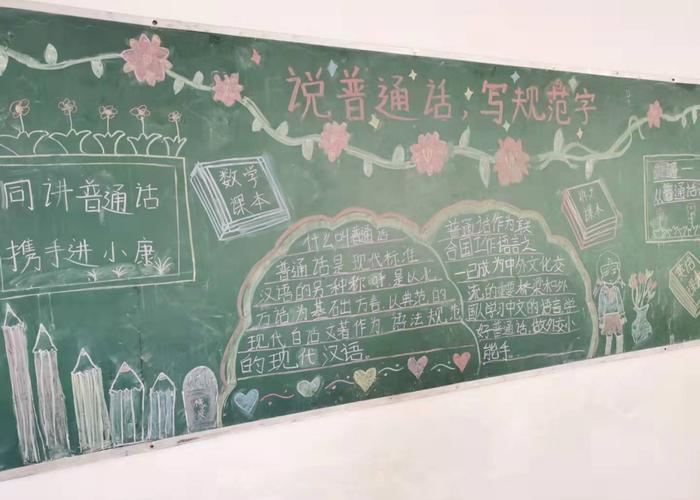 说普通话，写规范字
同讲普通话
携手进小康
数学
课本
什么叫普通话
普通话是现代标准
汉语的另种称呼是以北
方话为基础方言以典范的
现代白话文著作为语法规范
的现代汉语。
普通话作为联
合国工作语言之
一已成为中外文化交
流的
国人学习中文的
好普通话,做外交小
能手。
课本